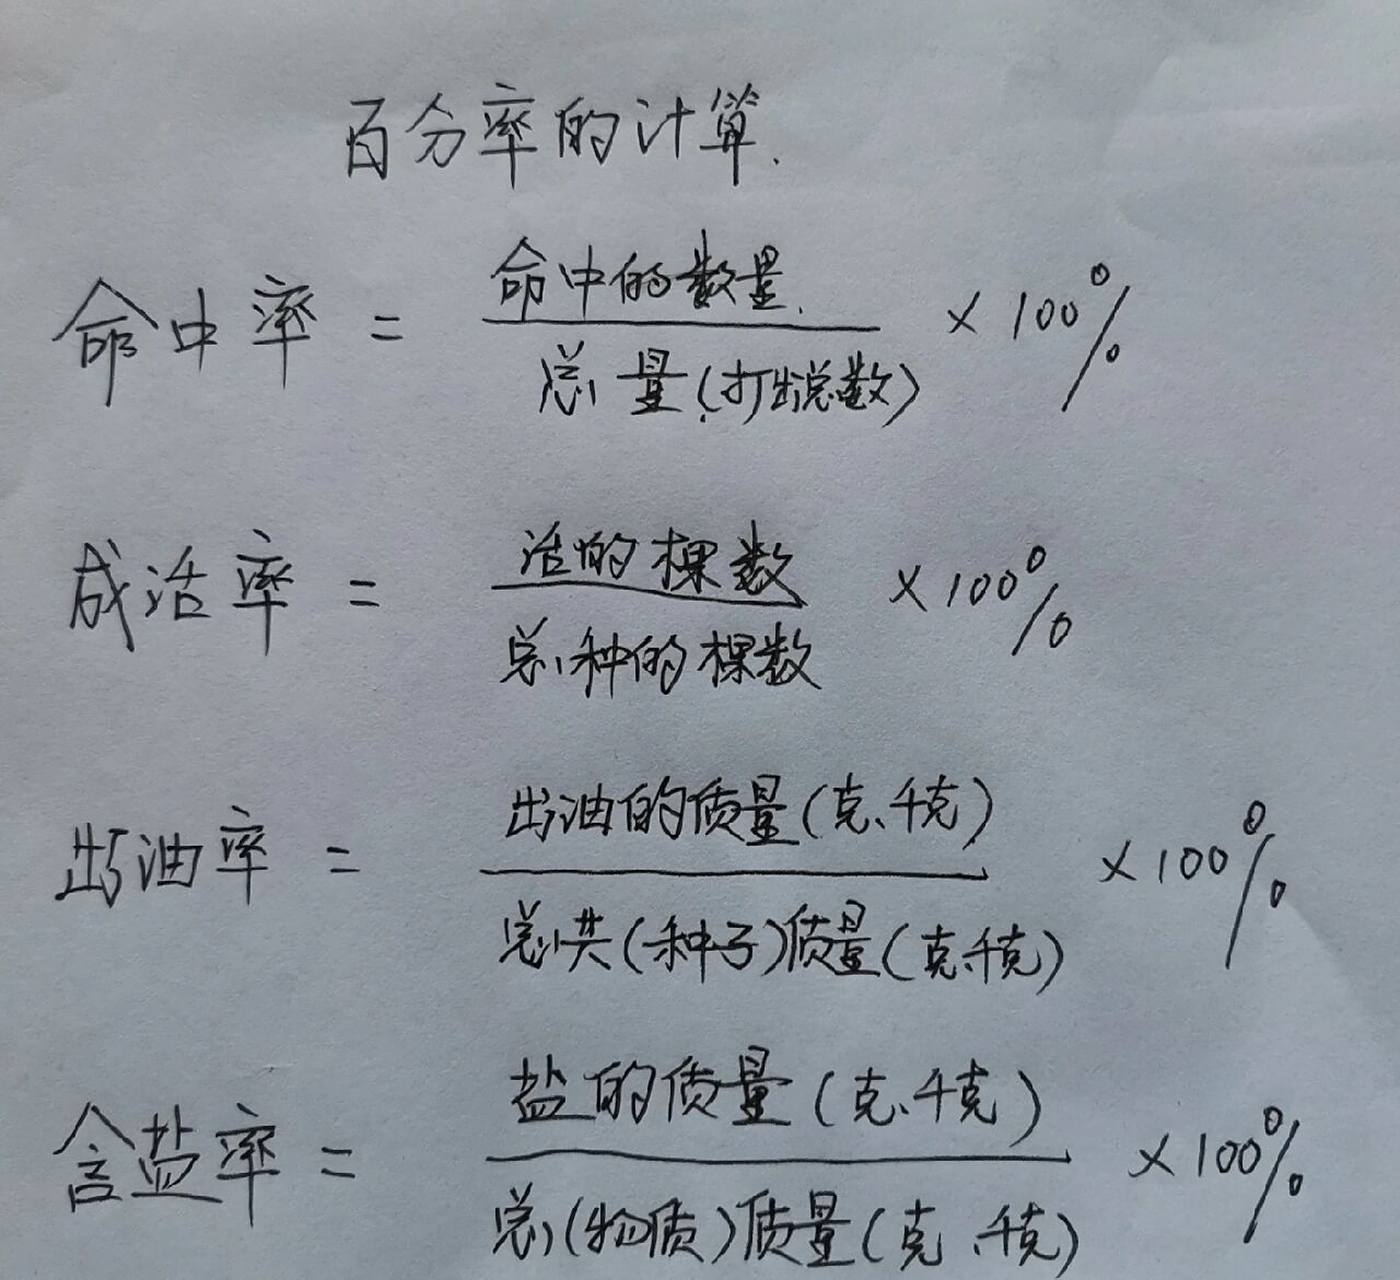 百分率的计算.
命中率 = 命中的数量. / 总量(打出总数) × 100%
成活率 = 活的棵数 / 总种的棵数 × 100%
出油率 = 出油的质量(克、千克) / 总共(种子)质量(克、千克) × 100%
含盐率 = 盐的质量(克、千克) / 总(物质)质量(克、千克) × 100%